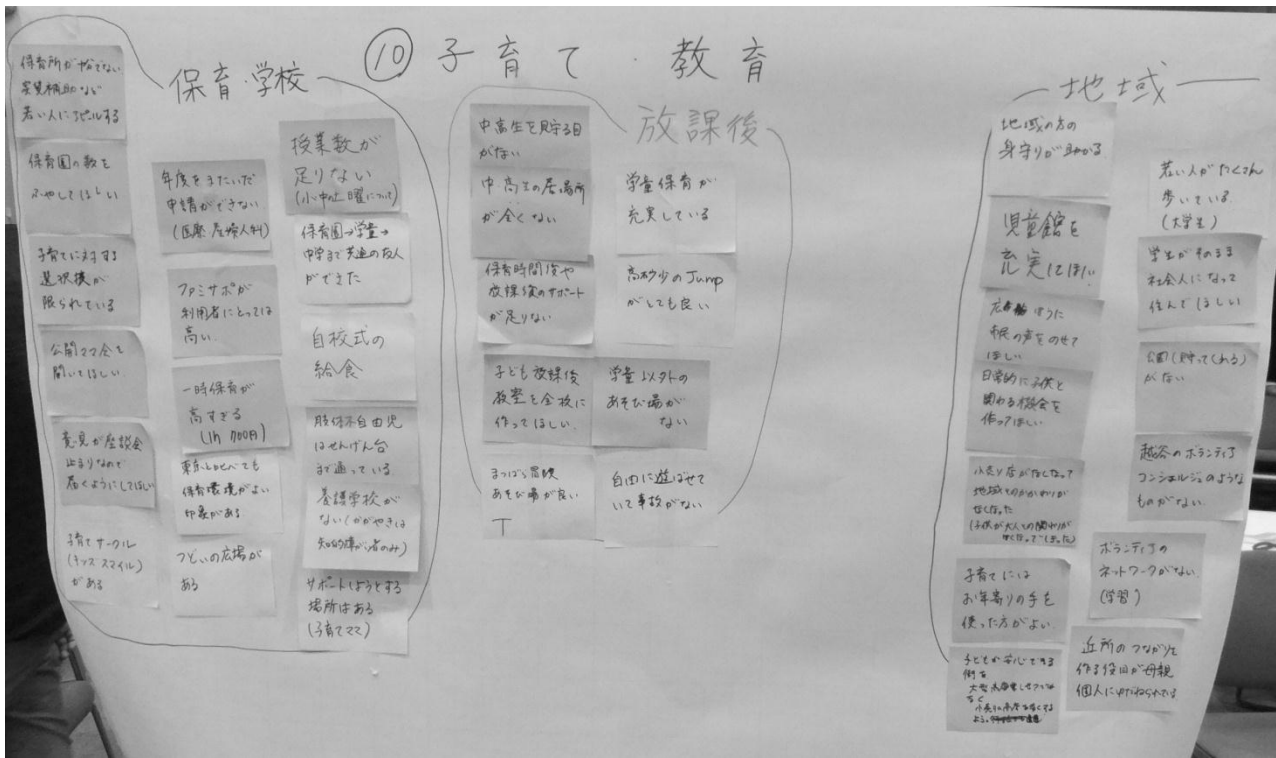 ⑩子育て・教育
保育・学校
保育所が
家賃補助など
若い人にアピールする
保育園の数を
ふやしてほしい
子育てに対する
選択肢が
限られている
公開ママ会を
開いてほしい
意見が座談会
止まりなので
届くようにしてほしい
子育てサークル
(キッズスマイル)
がある
年度をまたいだ
申請ができない
(医療 産婦人科)
ファミサポが
利用者にとっては
高い
一時保育が
高すぎる
(1h 700円)
東京とくらべても
保育環境がよい
印象がある
つどいの広場が
ある
授業数が
足りない
(小中の土曜について)
保育園→学童→
中学まで共通の友人
ができた
自校式の
給食
肢体不自由児
はせんげん台
まで通っている
養護学校が
ない(かがやきは
知的障がい者のみ)
サポートしようとする
場所はある
(子育てママ)
放課後
中高生を見守る目
がない
中・高生の居場所
が全くない
保育時間後や
放課後のサポート
が足りない
子ども放課後
教室を全校に
作ってほしい
まつばら冒険
あそび場が良い
学童保育が
充実している
高砂少のJump
がとても良い
学童以外の
あそび場が
ない
自由に遊ばせて
いて事故がない
地域
地域の方の
身守りが助かる
児童館を
充実してほしい
市民の声をのせて
ほしい
日常的に子供と
関わる機会を
作ってほしい
小売り店がなくなって
地域とのかかわりが
なくなった
(子供が大人との関わりが
なくなってしまった)
子育てには
お年寄りの手を
使った方がよい
子どもが安心できる
街を
若い人がたくさん
歩いている
(大学生)
学生がそのまま
社会人になって
住んでほしい
公園(貯ってくれる)
がない
越谷のボランティア
コンシェルジュのような
ものがない
ボランティアの
ネットワークがない
(学習)
近所のつながりを
作る役目が母親
個人にゆだねられている